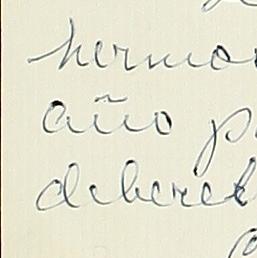 hermo
año p
deberé